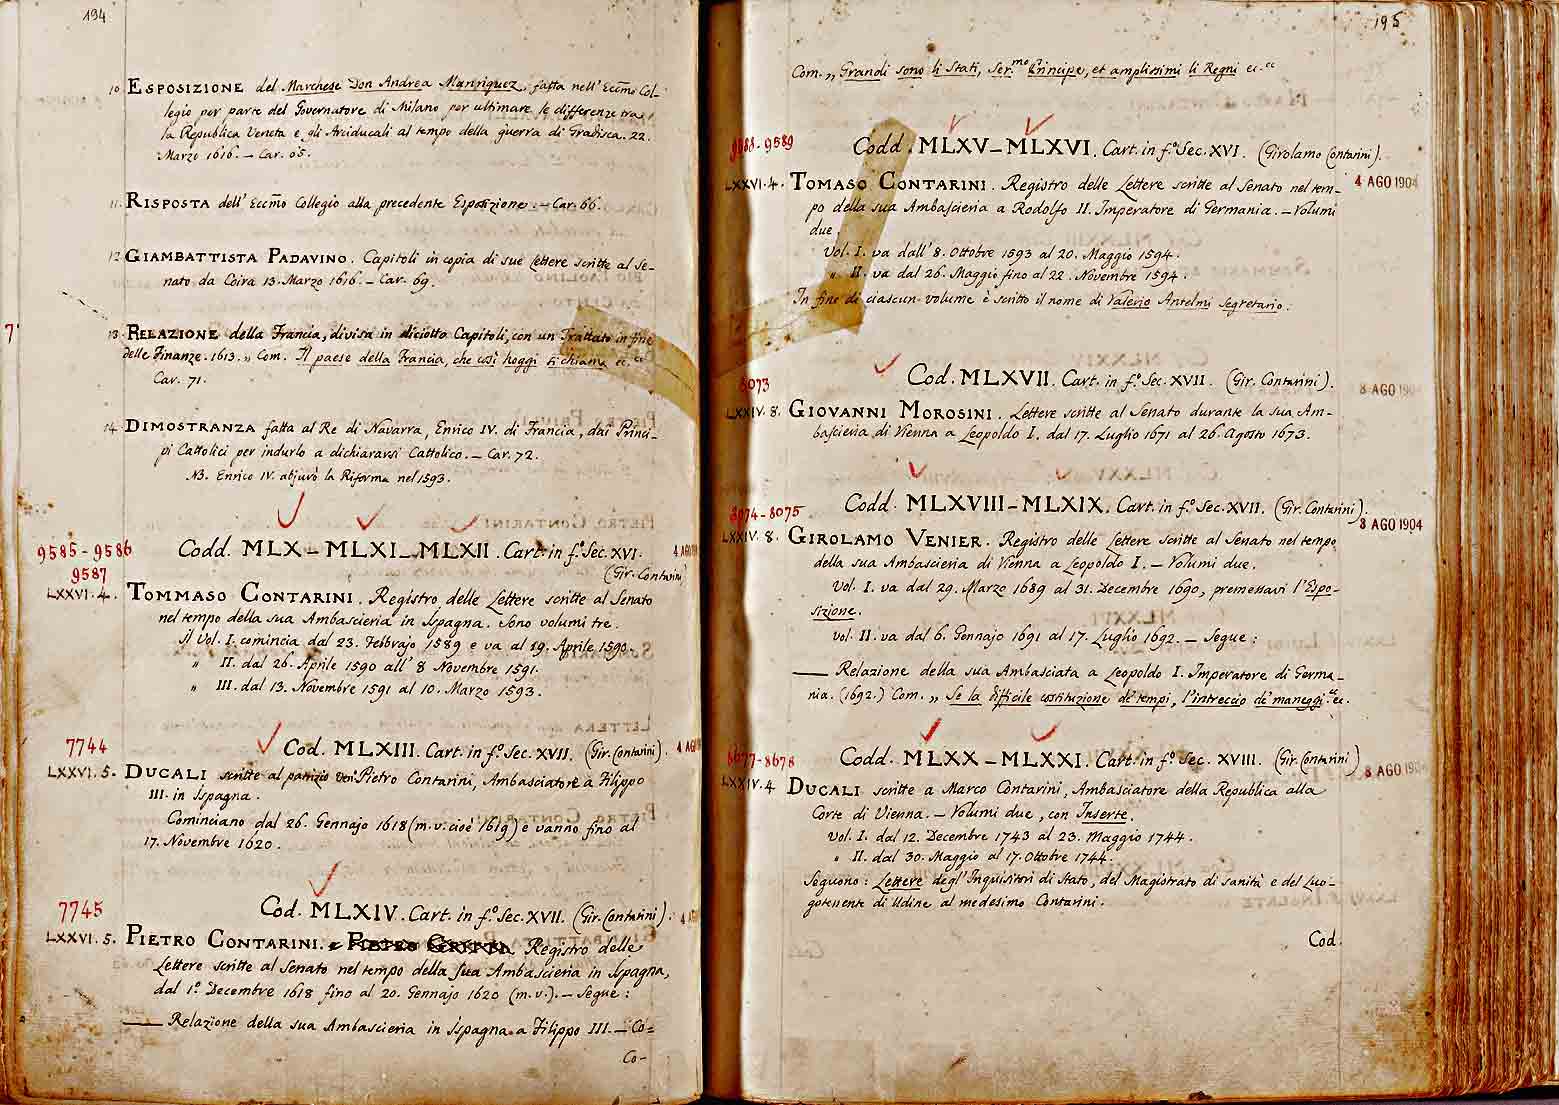 194
10. ESPOSIZIONE del Marchese Don Andrea Manriquez, fatta nell' Eccmo Col-
legio per parte del Governatore di Milano per ultimare le differenze tra
la Republica Veneta e gli Arciducali al tempo della guerra di Gradisca. 22.
Marzo 1616. — Car. 65.
11. RISPOSTA dell' Eccmo Collegio alla precedente Esposizione. — Car. 66.
12. GIAMBATTISTA PADAVINO. Capitoli in copia di sue Lettere scritte al Se-
nato da Coira 13. Marzo 1616. — Car. 69.
7
13. RELAZIONE della Francia, divisa in diciotto Capitoli, con un Trattato in fine
delle Finanze. 1613. „ Com. Il paese della Francia, che così hoggi si chiama ec.cc
Car. 71.
14. DIMOSTRANZA fatta al Re di Navarra, Enrico IV. di Francia, dai Princi-
pi Cattolici per indurlo a dichiararsi Cattolico. — Car. 72.
NB. Enrico IV. abjurò la Riforma nel 1593.
9585-9586 Codd. MLX — MLXI — MLXII. Cart. in f.º Sec. XVI. 4 AGO
9587 (Gir. Contarini)
LXXVI. 4. TOMMASO CONTARINI. Registro delle Lettere scritte al Senato
nel tempo della sua Ambascieria in Ispagna. Sono volumi tre.
Il Vol. I. comincia dal 23. Febbrajo 1589 e va al 19. Aprile 1590.
„ II. dal 26. Aprile 1590 all' 8 Novembre 1591.
„ III. dal 13. Novembre 1591 al 10. Marzo 1593.
7744 Cod. MLXIII. Cart. in f.º Sec. XVII. (Gir. Contarini). 4 AG
LXXVI. 5. DUCALI scritte al patrizio ven. Pietro Contarini, Ambasciatore a Filippo
III. in Ispagna.
Cominciano dal 26. Gennajo 1618 (m.v. cioè 1619) e vanno fino al
17. Novembre 1620.
7745 Cod. MLXIV. Cart. in f.º Sec. XVII. (Gir. Contarini). 4 AG
LXXVI. 5. PIETRO CONTARINI. e PIETRO GRITTI. Registro delle
Lettere scritte al Senato nel tempo della sua Ambascieria in Ispagna,
dal 1.º Decembre 1618 fino al 20. Gennajo 1620 (m.v.). — Segue:
— Relazione della sua Ambascieria in Ispagna a Filippo III. — Co=
Co-
195
Com. „ Grandi sono li Stati, Ser.mo Principe, et amplissimi li Regni ec.cc
9588-9589 Codd. MLXV — MLXVI. Cart. in f.º Sec. XVI. (Girolamo Contarini).
LXXVI. 4. TOMASO CONTARINI. Registro delle Lettere scritte al Senato nel tem- 4 AGO 1904
po della sua Ambascieria a Rodolfo II. Imperatore di Germania. — Volumi
due.
Vol. I. va dall' 8. Ottobre 1593 al 20. Maggio 1594.
„ II. va dal 26. Maggio fino al 22. Novembre 1594.
In fine di ciascun volume è scritto il nome di Valerio Antelmi Segretario.
8073 Cod. MLXVII. Cart. in f.º Sec. XVII. (Gir. Contarini). 8 AGO 1904
LXXIV. 8. GIOVANNI MOROSINI. Lettere scritte al Senato durante la sua Am-
bascieria di Vienna a Leopoldo I. dal 17. Luglio 1671 al 26. Agosto 1673.
8074-8075 Codd. MLXVIII — MLXIX. Cart. in f.º Sec. XVII. (Gir. Contarini).
8 AGO 1904
LXXIV. 8. GIROLAMO VENIER. Registro delle Lettere scritte al Senato nel tempo
della sua Ambascieria di Vienna a Leopoldo I. — Volumi due.
Vol. I. va dal 29. Marzo 1689 al 31. Decembre 1690, premettavi l'Espo-
sizione.
Vol. II. va dal 6. Gennajo 1691 al 17. Luglio 1692. — Segue:
— Relazione della sua Ambasciata a Leopoldo I. Imperatore di Germa-
nia. (1692.) Com. „ Se la difficile costituzione de' tempi, l'intreccio de' maneggi ec.
8677-8678 Codd. MLXX — MLXXI. Cart. in f.º Sec. XVIII. (Gir. Contarini)
8 AGO 1904
LXXIV. 4 DUCALI scritte a Marco Contarini, Ambasciatore della Republica alla
Corte di Vienna. — Volumi due, con Inserte.
Vol. I. dal 12. Decembre 1743 al 23. Maggio 1744.
„ II. dal 30. Maggio al 17. Ottobre 1744.
Seguono: Lettere degl' Inquisitori di Stato, del Magistrato di sanità e del Luo-
gotenente di Udine al medesimo Contarini.
Cod.